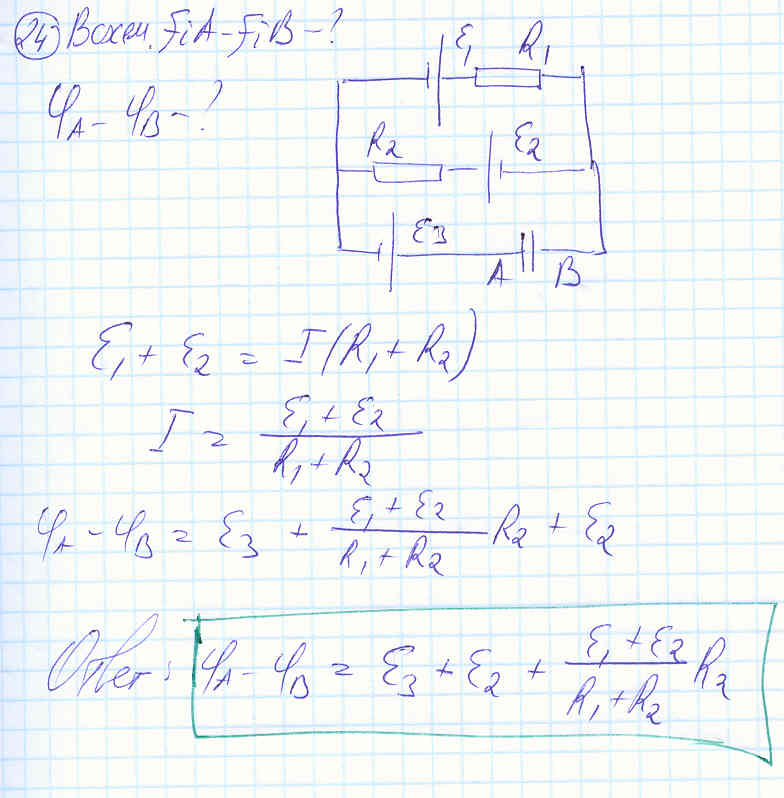 24) В схем. FiA - FiB - ?
φA - φB - ?
ℰ1 R1
R2 ℰ2
ℰ3
A B
ℰ1 + ℰ2 = I(R1 + R2)
I = (ℰ1 + ℰ2) / (R1 + R2)
φA - φB = ℰ3 + (ℰ1 + ℰ2) / (R1 + R2) R2 + ℰ2
Ответ: φA - φB = ℰ3 + ℰ2 + (ℰ1 + ℰ2) / (R1 + R2) R2